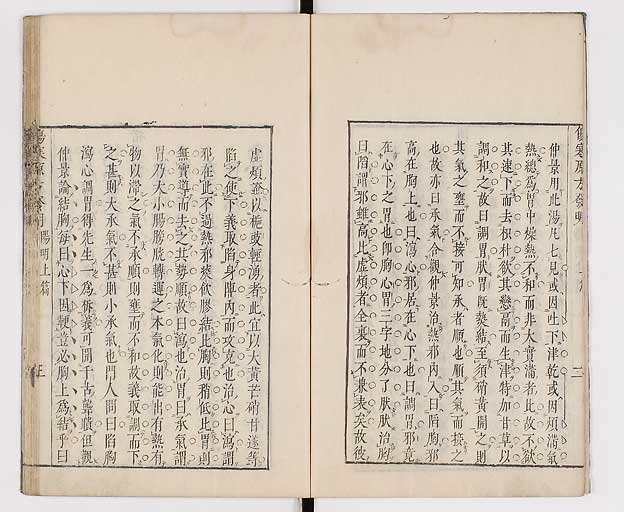 仲景用此湯凡七見或因吐下津乾或因煩滿氣
熱總爲胃中燥熱不和而非大實滿者比故不欲
其速下而去枳朴欲其戀膈而生津特加甘草以
調和之故曰調胃狀胃既熱結至須硝黃開之則
其氣之壅而不接可知承者順也順其氣而接之
也故亦曰承氣合觀仲景治熱邪內入曰陷胸邪
高在胸上也曰瀉心邪居在心下也曰調胃邪竟
在心下之胃也卽胸心胃三字地分了狀狀治胸
曰陷謂邪雖高比虛煩者全裏而不兼表矣故彼
虛煩證以梔豉輕湧者此宜以大黃芒硝甘遂等
陷之使下義取陷身陣內而攻克也治心曰瀉謂
邪在此不過熱邪痰飲膠結比胸則稍低比胃則
無實導而去之其勢順故曰瀉也治胃曰承氣謂
胃乃大小腸膀胱轉運之本氣化則能出有熱有
物以滯之氣不承順則壅而不和故義取調而下
之甚則大承氣不甚則小承氣也門人問曰陷胸
瀉心調胃得先生一爲析義可開千古聾聵但觀
仲景論結胸每曰心下因鞕豈必胸上爲結乎曰
傷寒原方發明
陽明上篇